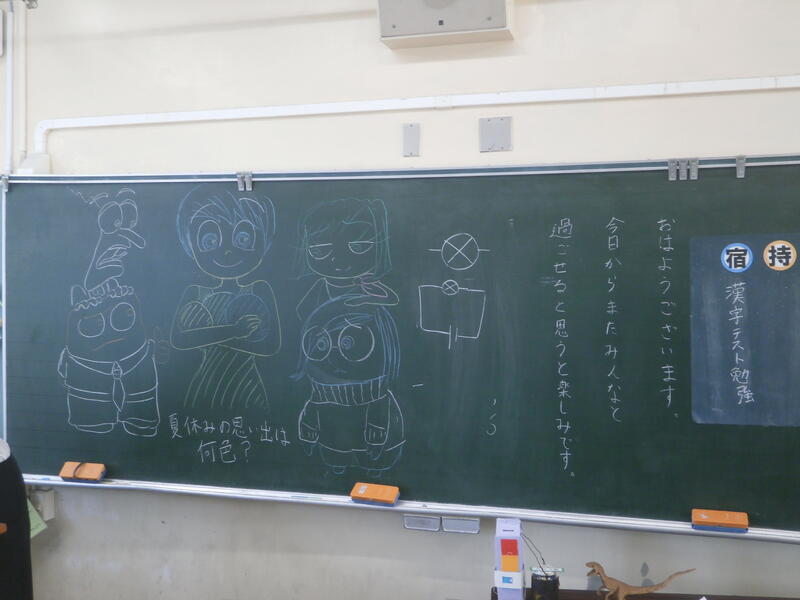 宿 持
漢字テスト勉強
おはようございます。
今日からまたみんなと
過ごせると思うと楽しみです。
夏休みの思い出は
何色?